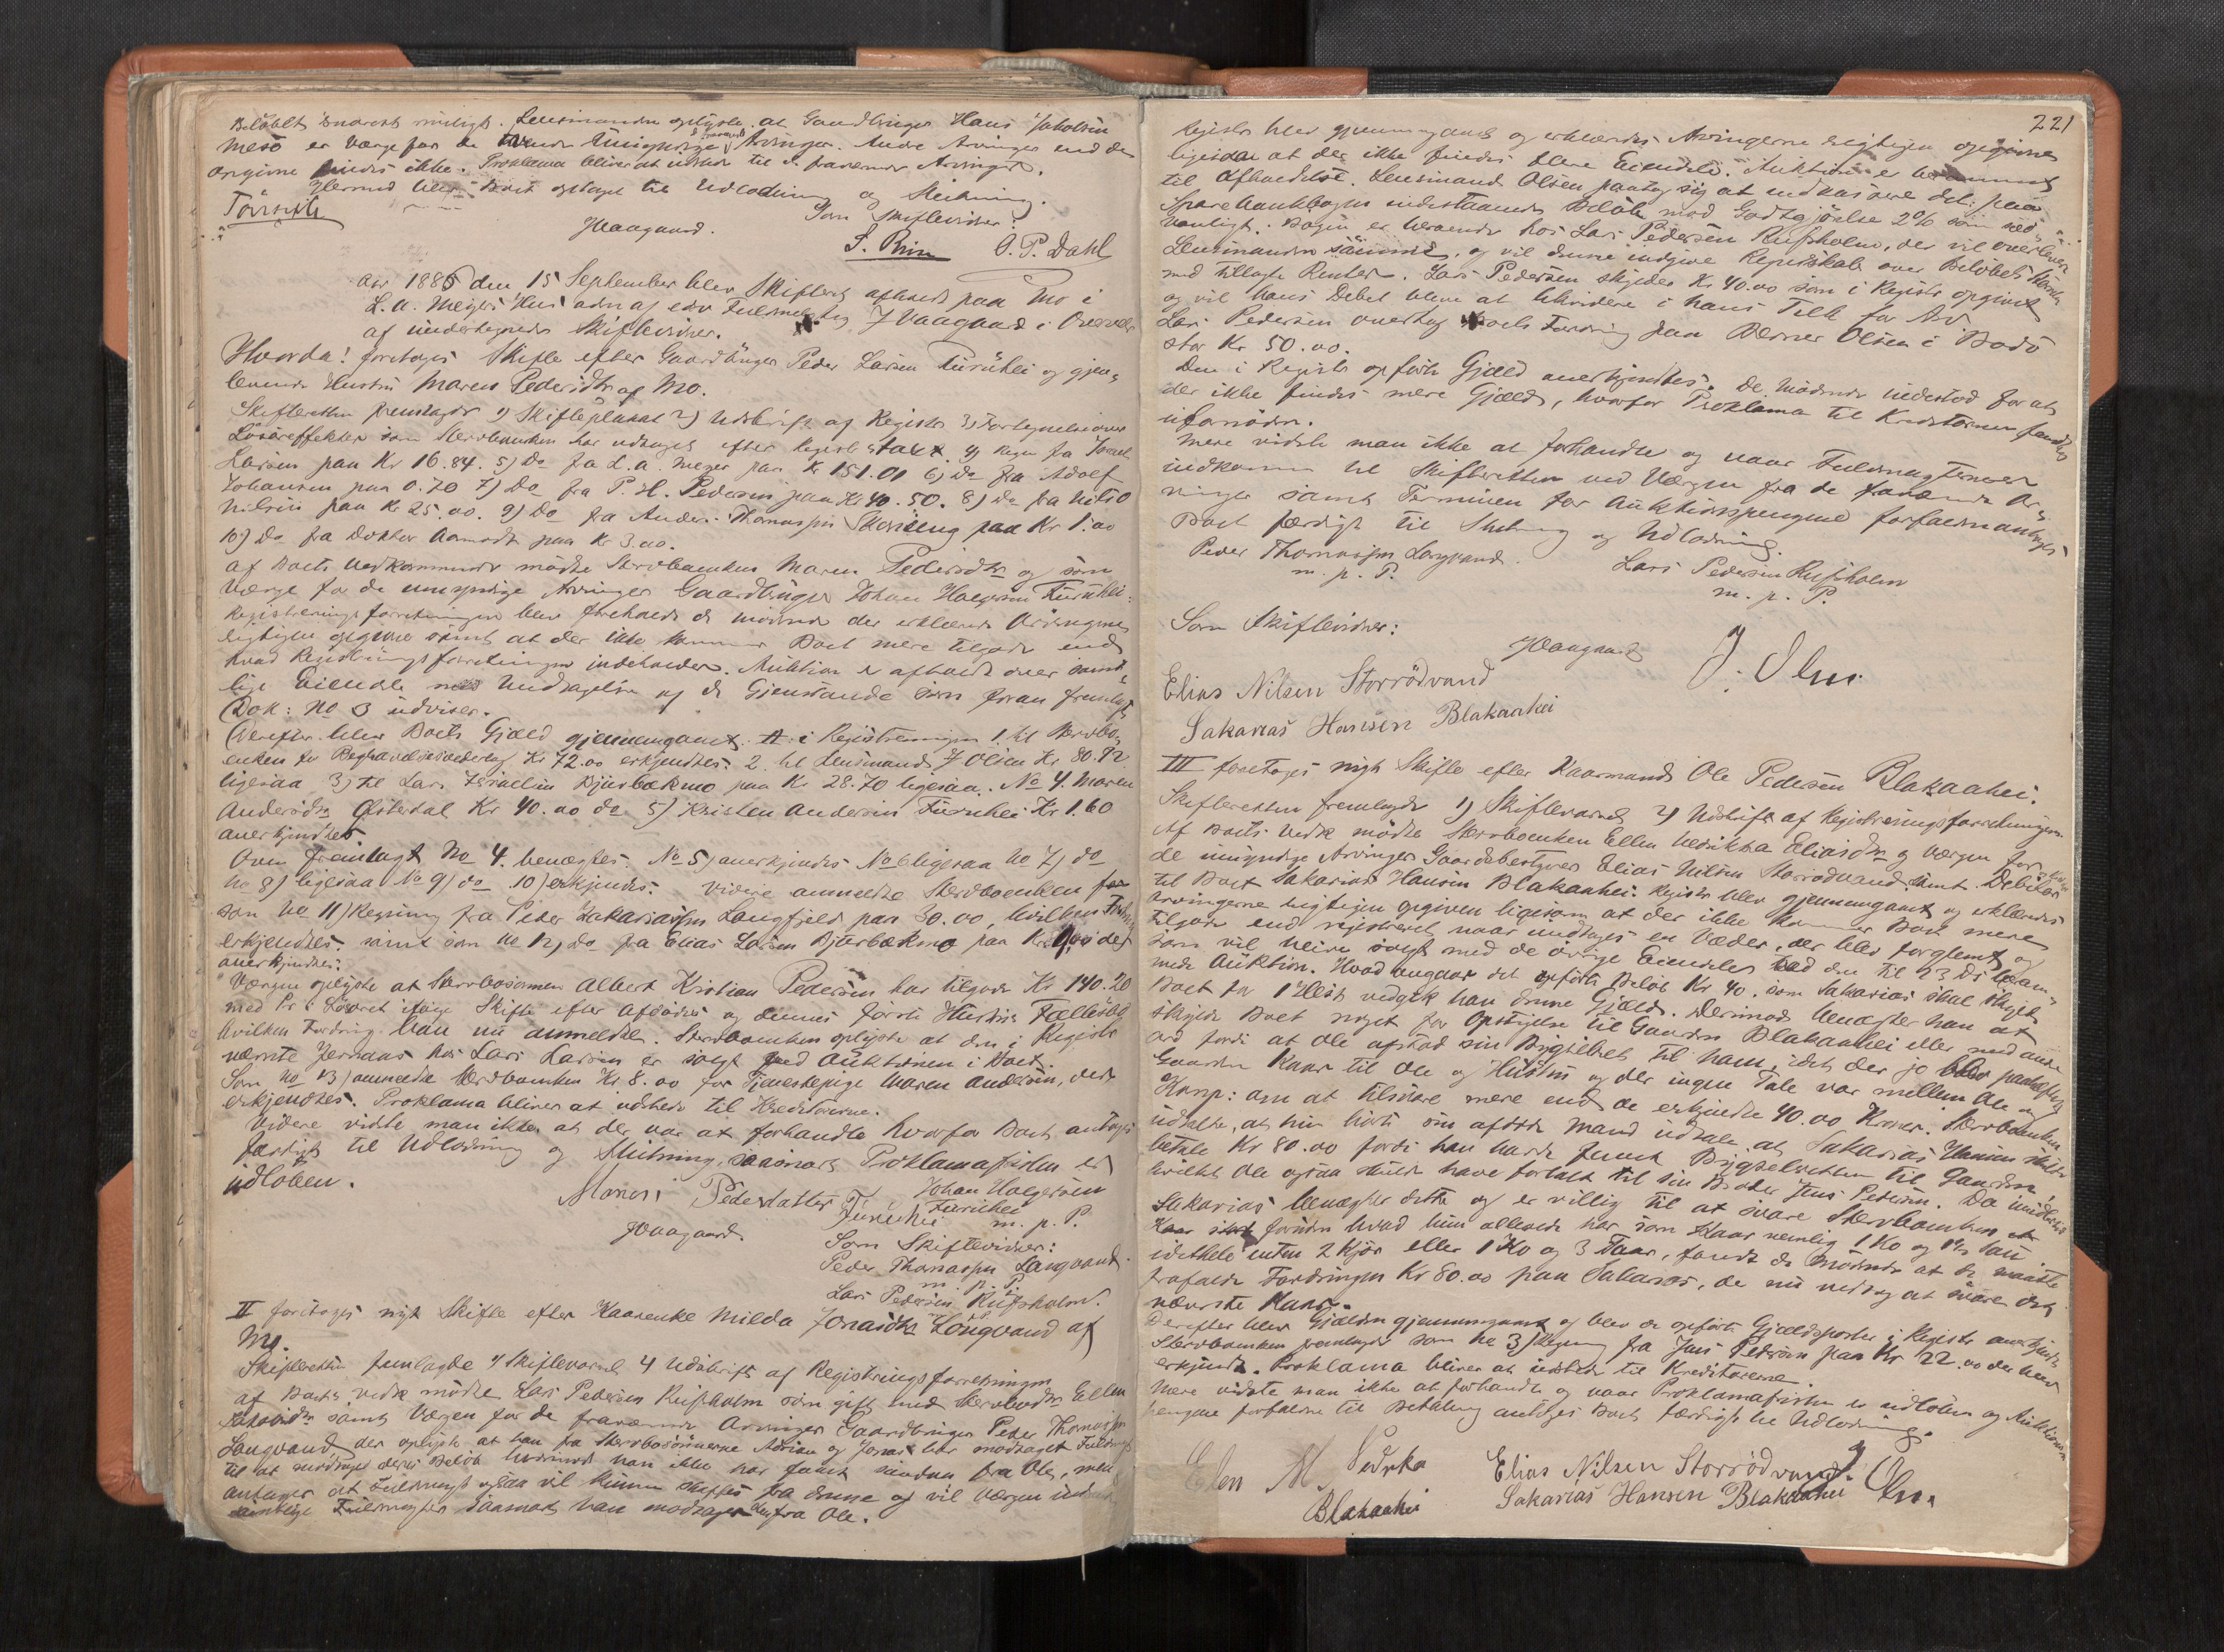 Beløbet snarest muligt. Lensmanden oplyste at Gaardbruger Hans Jakobsen
Mesø er Værge for de Umyndige fraværende Arvinger. Andre Arvinger end de
opgivne findes ikke. Proklama bliver at udstede til de fraværende Arvinger.
Hermed blev Boet optaget til Udlodning og Slutning.
Haagaard. Som Skiftevidner:
S. Rin O. P. Dahl
Aar 1886 den 15 September blev Skifteret afholdt paa Mo i
L. A. Meyers Hus adm af edv Fuldmægtig J Vaagaard i Overvær
af undertegnede Skiftevidner.
Hvorda! foretoges Skifte efter Gaardbruger Peder Larsen Furuhei og gjen-
levende Hustru Maren Pedersdtr af Mo.
Skifteretten fremlagde 1) Skifteplakat 2) Udskrift af Registr 3) Fortegnelse over
Løsøreffekter som Stervboenken har udtaget efter Registr.taxt 4) Regn fra Israel
Larsen paa Kr 16.84. 5) Do fra L. A. Meyer paa Kr 151.01 6) Do fra Adolf
Johansen paa 0.70 7) Do fra P. H. Pedersen paa Kr 40.50. 8) Do fra Nils O
Nilsen paa Kr 25.00. 9) Do fra Anders Thomassen paa Kr 1.00
10) Do fra Doktor Aamodt paa Kr 3.00.
Af Boets Vedkommende mødte Stervboenken Maren Pedersdtr og som
Værge for de umyndige Arvinger Gaardbruger Johan Holgersen Furuhei.
Registreringsforretningen blev foreholdt de mødende der erklærede Arvingerne
rigtigen opgivne samt at der ikke kommer Boet mere tilgode end
hvad Registreringsforretningen indeholder. Auktion er afholdt over samt-
lige Eiendele med Undtagelse af de Gjenstande som foran fremlagt
Dok: No 3 udviser.
Derefter blev Boets Gjæld gjennemgaaet. A. i Registreringen 1. til Stervbo-
enken for Begravelsesvederlag Kr 72.00 erkjendtes. 2. til Lensmand J Olsen Kr 80.12
ligesaa 3) til Lars Israelsen Bjurbækmo paa Kr 28.70 ligesaa. No 4. Maren
Andersdtr Østerdal Kr 40.00 do 5) Kristen Andersen Furuhei Kr 1.60
anerkjendtes
Oven fremlagt No 4. benægtes. No 5) anerkjendes No 6 ligesaa No 7) do
No 8) ligesaa No 9) do 10) erkjendes. Videre anmeldte Stervboenken
som No 11) Regning fra Peder Zakariassen Langfjeld paa 30.00, hvilken
erkjendtes. samt som No 12) Do fra Elias Larsen Bjurbækmo paa Kr der
anerkjendtes.
Værgen oplyste at Stervbosønnen Albert Kristian Pedersen har tilgode Kr 140.20
med Pr i Løsøret ifølge Skifte efter Afdødes og dennes første Hustrus Fællesbo
hvilken Fordring han nu anmeldte. Stervboenken oplyste at den i Registr
nævnte Jernaas hos Lars Larsen er solgt ved Auktionen i Boet.
Som No 13) anmeldte Stervboenken Kr 8.00 for Tjenestepige Maren Andersen, der
erkjendtes. Proklama bliver at udstede til Kreditorerne.
Videre vidste man ikke at der var at forhandle hvorfor Boet antages
færdigt til Udlodning og Slutning, saasnart Proklamafristen er
udløben.
Maren Pedersdatter Furuhei
Johan Holgersen
Furuhei
m. p. P.
Haagaard.
Som Skiftevidner:
Peder Thomassen Langvand.
m. p. P.
Lars Pedersen Rufsholm.
II foretoges nyt Skifte efter Kaarenke Milda Jonasdtr Langvand af
Mo.
Skifteretten fremlagde 1) Skiftevarsel 2) Udskrift af Registreringsforretningen
Af Boets vedk mødte Lars Pedersen Rufsholm som gift med Stervbodtr Ellen
samt Værgen for de fraværende Arvinger Gaardbruger Peder Thomassen
Langvand, der oplyste at han fra Stervbosønnerne Adrian og Jonas har modtaget Fuldmagt
til at modtage deres Beløb hvorimod han ikke har faaet saadan fra Ole, men
antager at Fuldmagt ogsaa vil kunne skaffes fra denne og vil Værgen
Fuldmagter saasnart han modtager den fra Ole.
221
Registr blev gjennemgaaet og erklæredes Arvingerne rigtigen opgivne
ligesaa at der ikke findes flere Eiendele. Auktion er
til Afholdelse. Lensmand Olsen paatog sig at indkassere det paa
Sparebankbogen indestaaende Beløb mod Godtgjørelse 2% som
vanligt. Bogen er beroende hos Lars Pedersen Rufsholm, der vil overlevere
Lensmanden samme, og vil denne indgive Regnskab over Beløbets Størrelse
med tillagte Renter. Lars Pedersen skylder Kr 40.00 som i Registr opgivet
og vil hans Debet blive at likvidere i hans Tilk for Arv
Lars Pedersen overtog Boets Fordring paa Verner Olsen i Bodø
stor Kr 50.00.
Den i Registr opførte Gjæld anerkjendtes. De Mødende indestod for at
der ikke findes mere Gjæld, hvorfor Proklama til Kreditorene
ufornøden.
Mere vidste man ikke at forhandle og naar Fuldmagterne er
indkomne til Skifteretten ved Værgen fra de fraværende Ar-
vinger samt Terminen for Auktionspengene forfalden antages
Boet færdigt til Slutning og Udlodning.
Peder Thomassen Langvand.
m. p. P.
Lars Pedersen Rufsholm
m. p. P.
Som Skiftevidner:
Haagaard
J. Olsen
Elias Nilsen Storrødvand
Sakarias Hansen Blakaahei
III foretoges nyt Skifte efter Kaarmand Ole Pedersen Blakaahei.
Skifteretten fremlagde 1) Skiftevarsel 2) Udskrift af Registreringsforretningen
Af Boets vedk mødte Stervboenken Ellen Hedrikka Eliasdtr og Værgen for
de umyndige Arvinger Gaardsbestyrer Elias Nilsen Storrødvand samt Debitor
til Boet Sakarias Hansen Blakaahei. Registr blev gjennemgaaet og erklæredes
Arvingerne rigtigen opgiven ligesom at der ikke kommer Boet mere
tilgode end registreret naar undtages en Væder, der blev forglemt og
som vil blive solgt med de øvrige Eiendele ved den til 23 Ds beram-
mede Auktion. Hvad angaar det opførte Beløb Kr 40. som Sakarias skal skylde
Boet for 1 Hest vedgik han denne Gjæld. Derimod benægter han at
skylde Boet noget for Opstigelse til Gaarden Blakaahei eller med andre
ord fordi at Ole afstod sin Bygselret til ham, idet der jo blev paahæftet
Gaarden Kaar til Ole og Hustru og der ingen Tale var mellem Ole og
Komp: om at tilsvare mere end de erkjendte 40.00 Kroner. Stervboenken
udtalte, at hun hørte sin afdøde Mand udtale at Sakarias Hansen skulde
betale Kr 80.00 fordi han havde faaet Bygselretten til Gaarden,
hvilket Ole ogsaa skulde have fortalt til sin Broder Jens Pedersen. Da imidlertid
Sakarias benægter dette og er villig til at svare Stervboenken et
Kaar foruden hvad hun allerede har som Kaar nemlig 1 Ko og
enten 2 Kjør eller 1 Ko og 3 Faar, fandt de Mødende at de maatte
frafalde Fordringen Kr 80.00 paa Sakarias, da nu vedtog at svare det
nævnte Kaar.
Derefter blev Gjælden gjennemgaaet og blev de opførte Gjældsposter i Registr anerkjendt
Stervboenken fremlagde som No 3) Regning fra Jens Pedersen paa Kr 22.00 der blev
erkjendt. Proklama bliver at udstede til Kreditorerne.
Mere vidste man ikke at forhandle og naar Proklamafristen er udløben og Auktions-
pengene forfaldne til Betaling antages Boet færdigt til Udlodning.
Elen Hedvka
Blakaahei
Elias Nilsen Storrødvand. J Olsen.
Sakarias Hansen Blakaahei